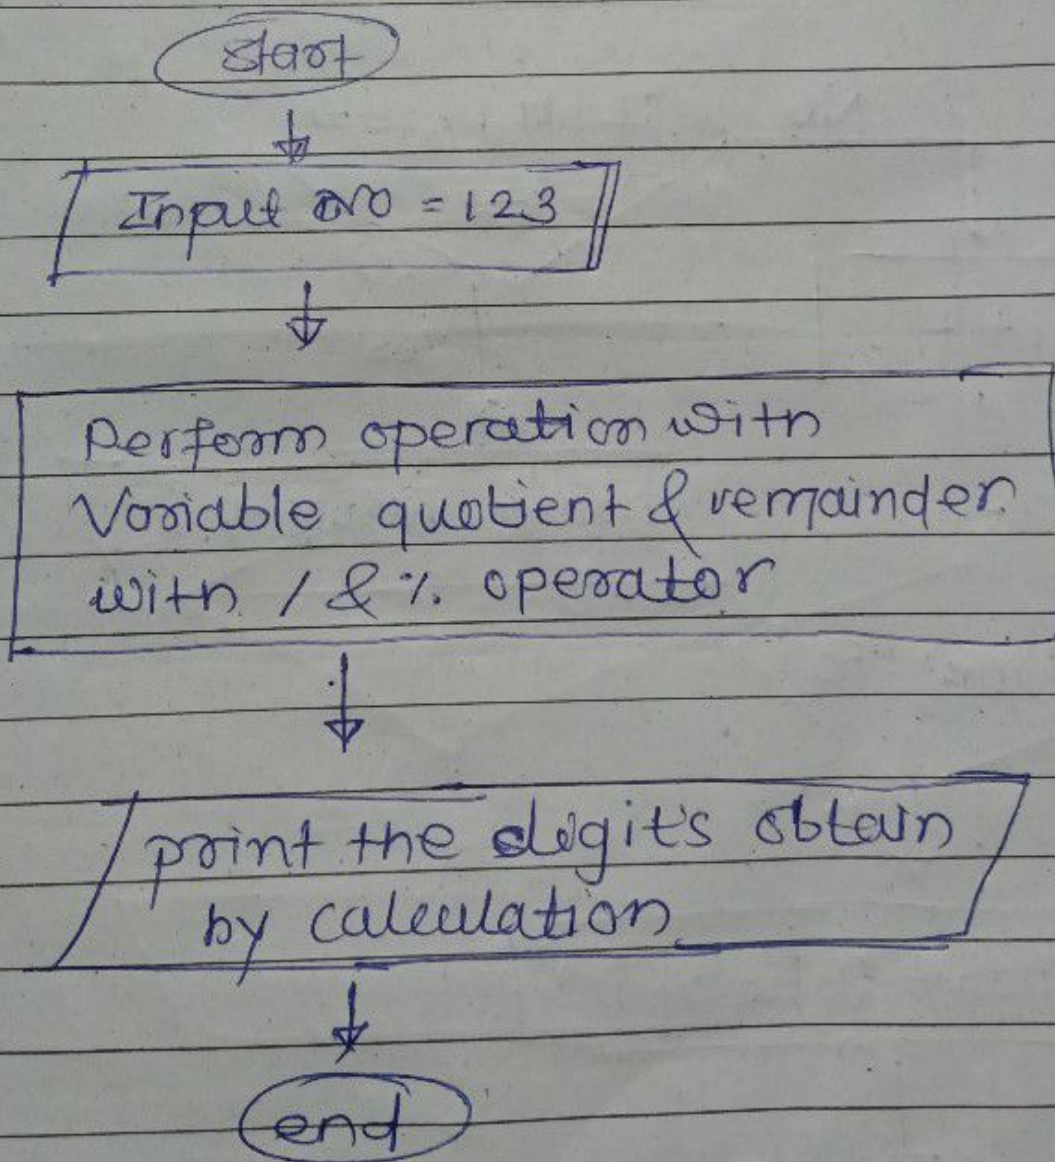 start
Input no = 123
Perform operation with
Variable quotient & remainder
with / & % operator
print the digit's obtain
by calculation
end